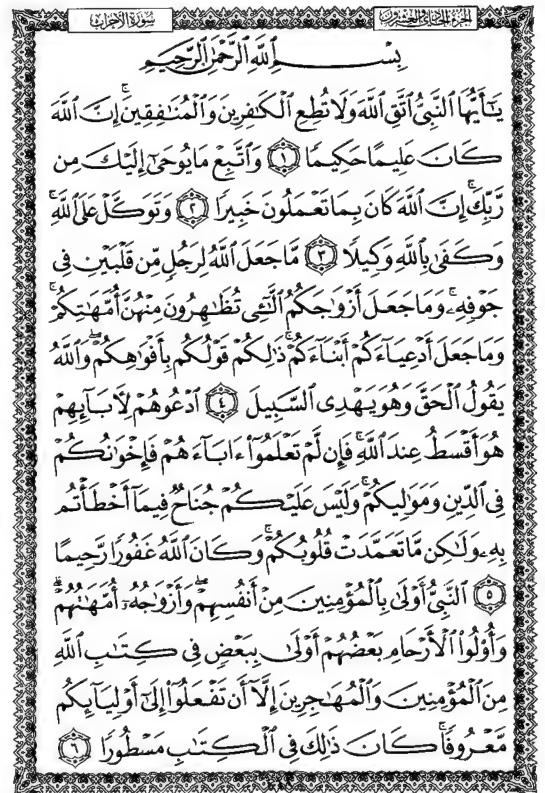 الجزء الحادي والعشرون
سورة الأحزاب
بِسْمِ ٱللَّهِ ٱلرَّحْمَٰنِ ٱلرَّحِيمِ
يَٰٓأَيُّهَا ٱلنَّبِىُّ ٱتَّقِ ٱللَّهَ وَلَا تُطِعِ ٱلْكَٰفِرِينَ وَٱلْمُنَٰفِقِينَۚ إِنَّ ٱللَّهَ
كَانَ عَلِيمًا حَكِيمًا ١ وَٱتَّبِعْ مَا يُوحَىٰٓ إِلَيْكَ مِن
رَّبِّكَۚ إِنَّ ٱللَّهَ كَانَ بِمَا تَعْمَلُونَ خَبِيرًا ٢ وَتَوَكَّلْ عَلَى ٱللَّهِۚ
وَكَفَىٰ بِٱللَّهِ وَكِيلًا ٣ مَّا جَعَلَ ٱللَّهُ لِرَجُلٍ مِّن قَلْبَيْنِ فِى
جَوْفِهِۦۚ وَمَا جَعَلَ أَزْوَٰجَكُمُ ٱلَّٰٓـِٔى تُظَٰهِرُونَ مِنْهُنَّ أُمَّهَٰتِكُمْۚ
وَمَا جَعَلَ أَدْعِيَآءَكُمْ أَبْنَآءَكُمْۚ ذَٰلِكُمْ قَوْلُكُم بِأَفْوَٰهِكُمْۖ وَٱللَّهُ
يَقُولُ ٱلْحَقَّ وَهُوَ يَهْدِى ٱلسَّبِيلَ ٤ ٱدْعُوهُمْ لِءَابَآئِهِمْ
هُوَ أَقْسَطُ عِندَ ٱللَّهِۚ فَإِن لَّمْ تَعْلَمُوٓا۟ ءَابَآءَهُمْ فَإِخْوَٰنُكُمْ
فِى ٱلدِّينِ وَمَوَٰلِيكُمْۚ وَلَيْسَ عَلَيْكُمْ جُنَاحٌ فِيمَآ أَخْطَأْتُم
بِهِۦ وَلَٰكِن مَّا تَعَمَّدَتْ قُلُوبُكُمْۚ وَكَانَ ٱللَّهُ غَفُورًا رَّحِيمًا
٥ ٱلنَّبِىُّ أَوْلَىٰ بِٱلْمُؤْمِنِينَ مِنْ أَنفُسِهِمْۖ وَأَزْوَٰجُهُۥٓ أُمَّهَٰتُهُمْۗ
وَأُو۟لُوا۟ ٱلْأَرْحَامِ بَعْضُهُمْ أَوْلَىٰ بِبَعْضٍ فِى كِتَٰبِ ٱللَّهِ
مِنَ ٱلْمُؤْمِنِينَ وَٱلْمُهَٰجِرِينَ إِلَّآ أَن تَفْعَلُوٓا۟ إِلَىٰٓ أَوْلِيَآئِكُم
مَّعْرُوفًاۚ كَانَ ذَٰلِكَ فِى ٱلْكِتَٰبِ مَسْطُورًا ٦